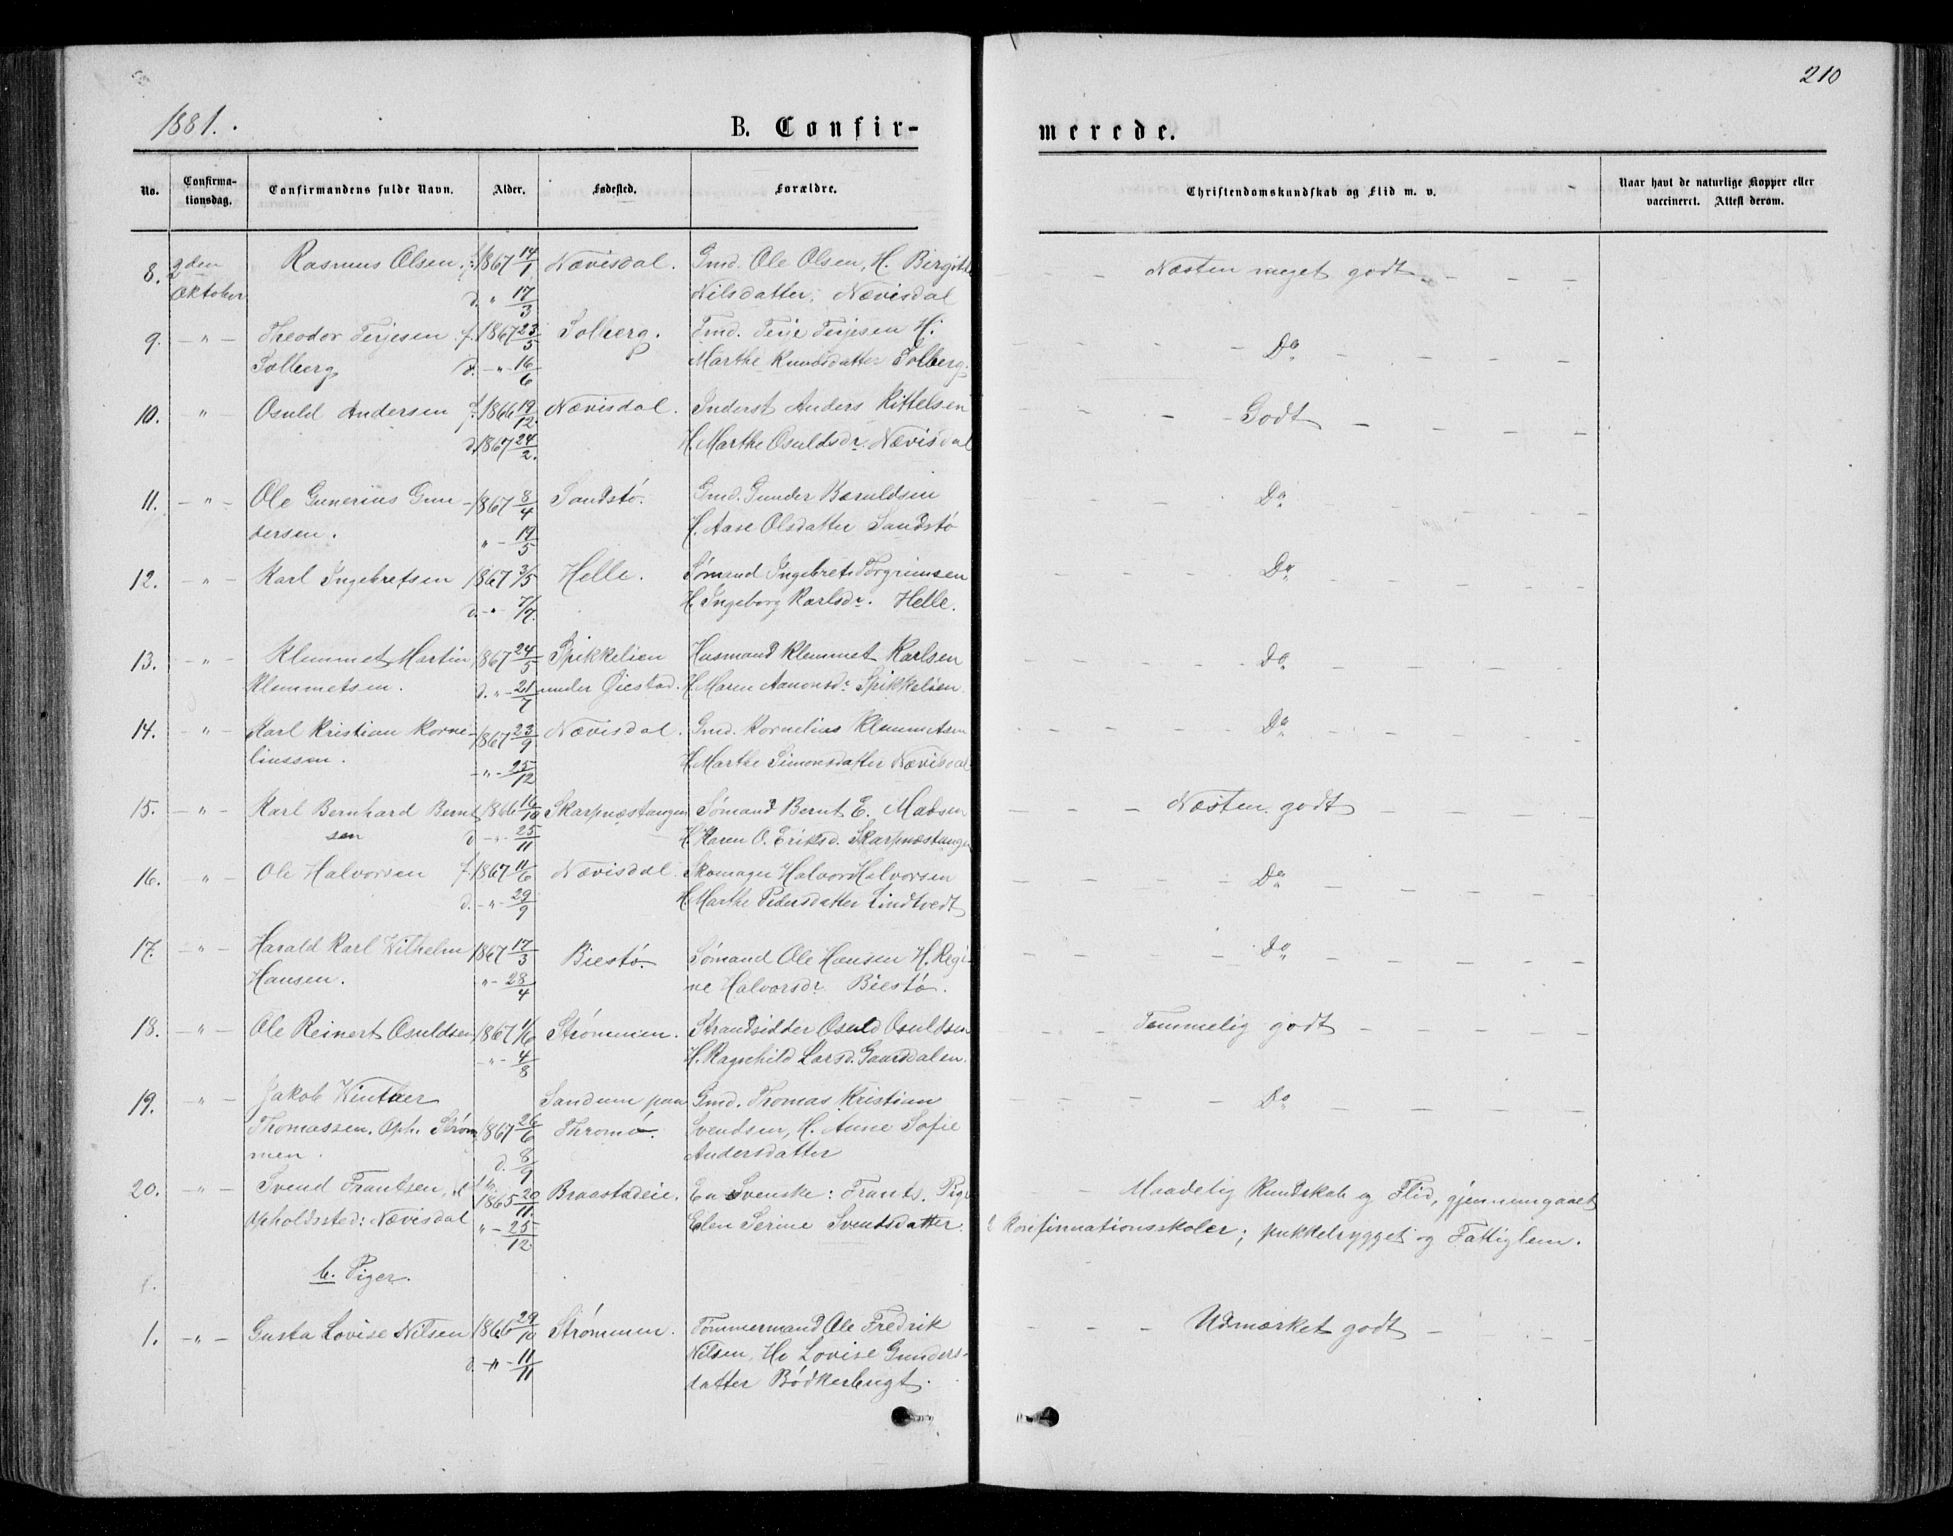 210
1881.
B. Confirmerede.
No. Confirmationsdag. Confirmandens fulde Navn. Alder. Fødested. Forældre. Christendomskundskab og Flid m. v. Naar havt de naturlige Kopper eller vaccineret. Attest derom.
8. 2den Rasmus Olsen f. 1867 14/1 Nævisdal. Gmd. Ole Olsen, H. Birgitte - - Næsten meget godt - - -
Oktober d. " 17/3 Nilsdatter, Nævisdal
9. - " - Theodor Terjesen f. 1867 23/5 Solberg. Gmd. Terje Terjesen H. - - - Do - - -
Solberg d. - " - 16/6 Marthe Knudsdatter Solberg.
10. " - Osuld Andersen f. 1866 19/12 Nævisdal. Inderst Anders Kittelsen - - - Godt - - -
d. 1867 24/2. H. Marthe Osuldsdr. Nævisdal
11. - " - Ole Gunerius Gun- 1867 8/4 Sandstø. Gmd. Gunder Baruldsen - - Do - - -
dersen. " - 19/5 H. Aase Olsdatter Sandstø
12. - " - Karl Ingebretsen 1867 3/5 Helle. Sømand Ingebret Torgrimsen - - - Do - - -
d. - " - 7/7. H. Ingeborg Karlsdr. Helle.
13. - " - Klemmet Martin 1867 24/5 Spikkelien Husmand Klemmet Karlsen - - - Do - - -
Klemmetsen. d. " - 21/7 under Øiestad. H. Maren Aanonsdr. Spikkelien.
14. - " - Karl Kristian Korne- 1867 23/9 Nævisdal. Gmd. Kornelius Klemmetsen - - - Do - - -
liussen. - " - 25/12 H. Marthe Simonsdatter Nævisdal
15. - " - Karl Bernhard Bernt 1866 16/10 Skarpnæstangen Sømand Bernt E. Madsen - - - Næsten godt - - -
sen d - " - 25/11 H. Karen O. Eriksd. Skarpnæstangen
16. - " - Ole Halvorsen f. 1867 11/6 Nævisdal. Skomager Halvor Halvorsen - - - Do - - -
d. - " - 29/9 H. Marthe Pedersdatter Lindtvedt
17. - " - Harald Karl Wilhelm 1867 17/3 Biestø. Sømand Ole Hansen H. Regi- - - - Do - - -
Hansen. " - 28/4 ne Halvorsdr. Biestø.
18. - " - Ole Reinert Osuldsen 1867 1/6 Strømmen. Strandsidder Osuld Osuldsen - - Temmelig godt - - -
" - 4/8 H. Ragnhild Larsd. Gaardalen.
19. - " - Jakob Winther Sandum paa Gmd. Thomas Kristian - - - Do - - -
Thomassen. Oph. Strøm- 1867 26/6 Thromø. Svendsen, H. Anne Sofie
men. d. 8/9 Andersdatter
20. - " - Svend Frantsen, 1865 20/11 Braastadeie. En Svenske: Frants. Pige - - Maadelig Kundskab og Flid, gjennemgaaet
Opholdssted: Nævisdal " - 25/12 Elen Serine Svendsdatter. 2 Konfirmationsskoler; pukkelrygget og Fattiglem.
b. Piger.
1. - " - Gusta Lovise Nilsen 1866 29/10 Strømmen. Tømmermand Ole Fredrik - - - Udmærket godt - - -
d. - " - 11/11 Nilsen, H. Lovise Gunders-
datter Bødkerbugt.